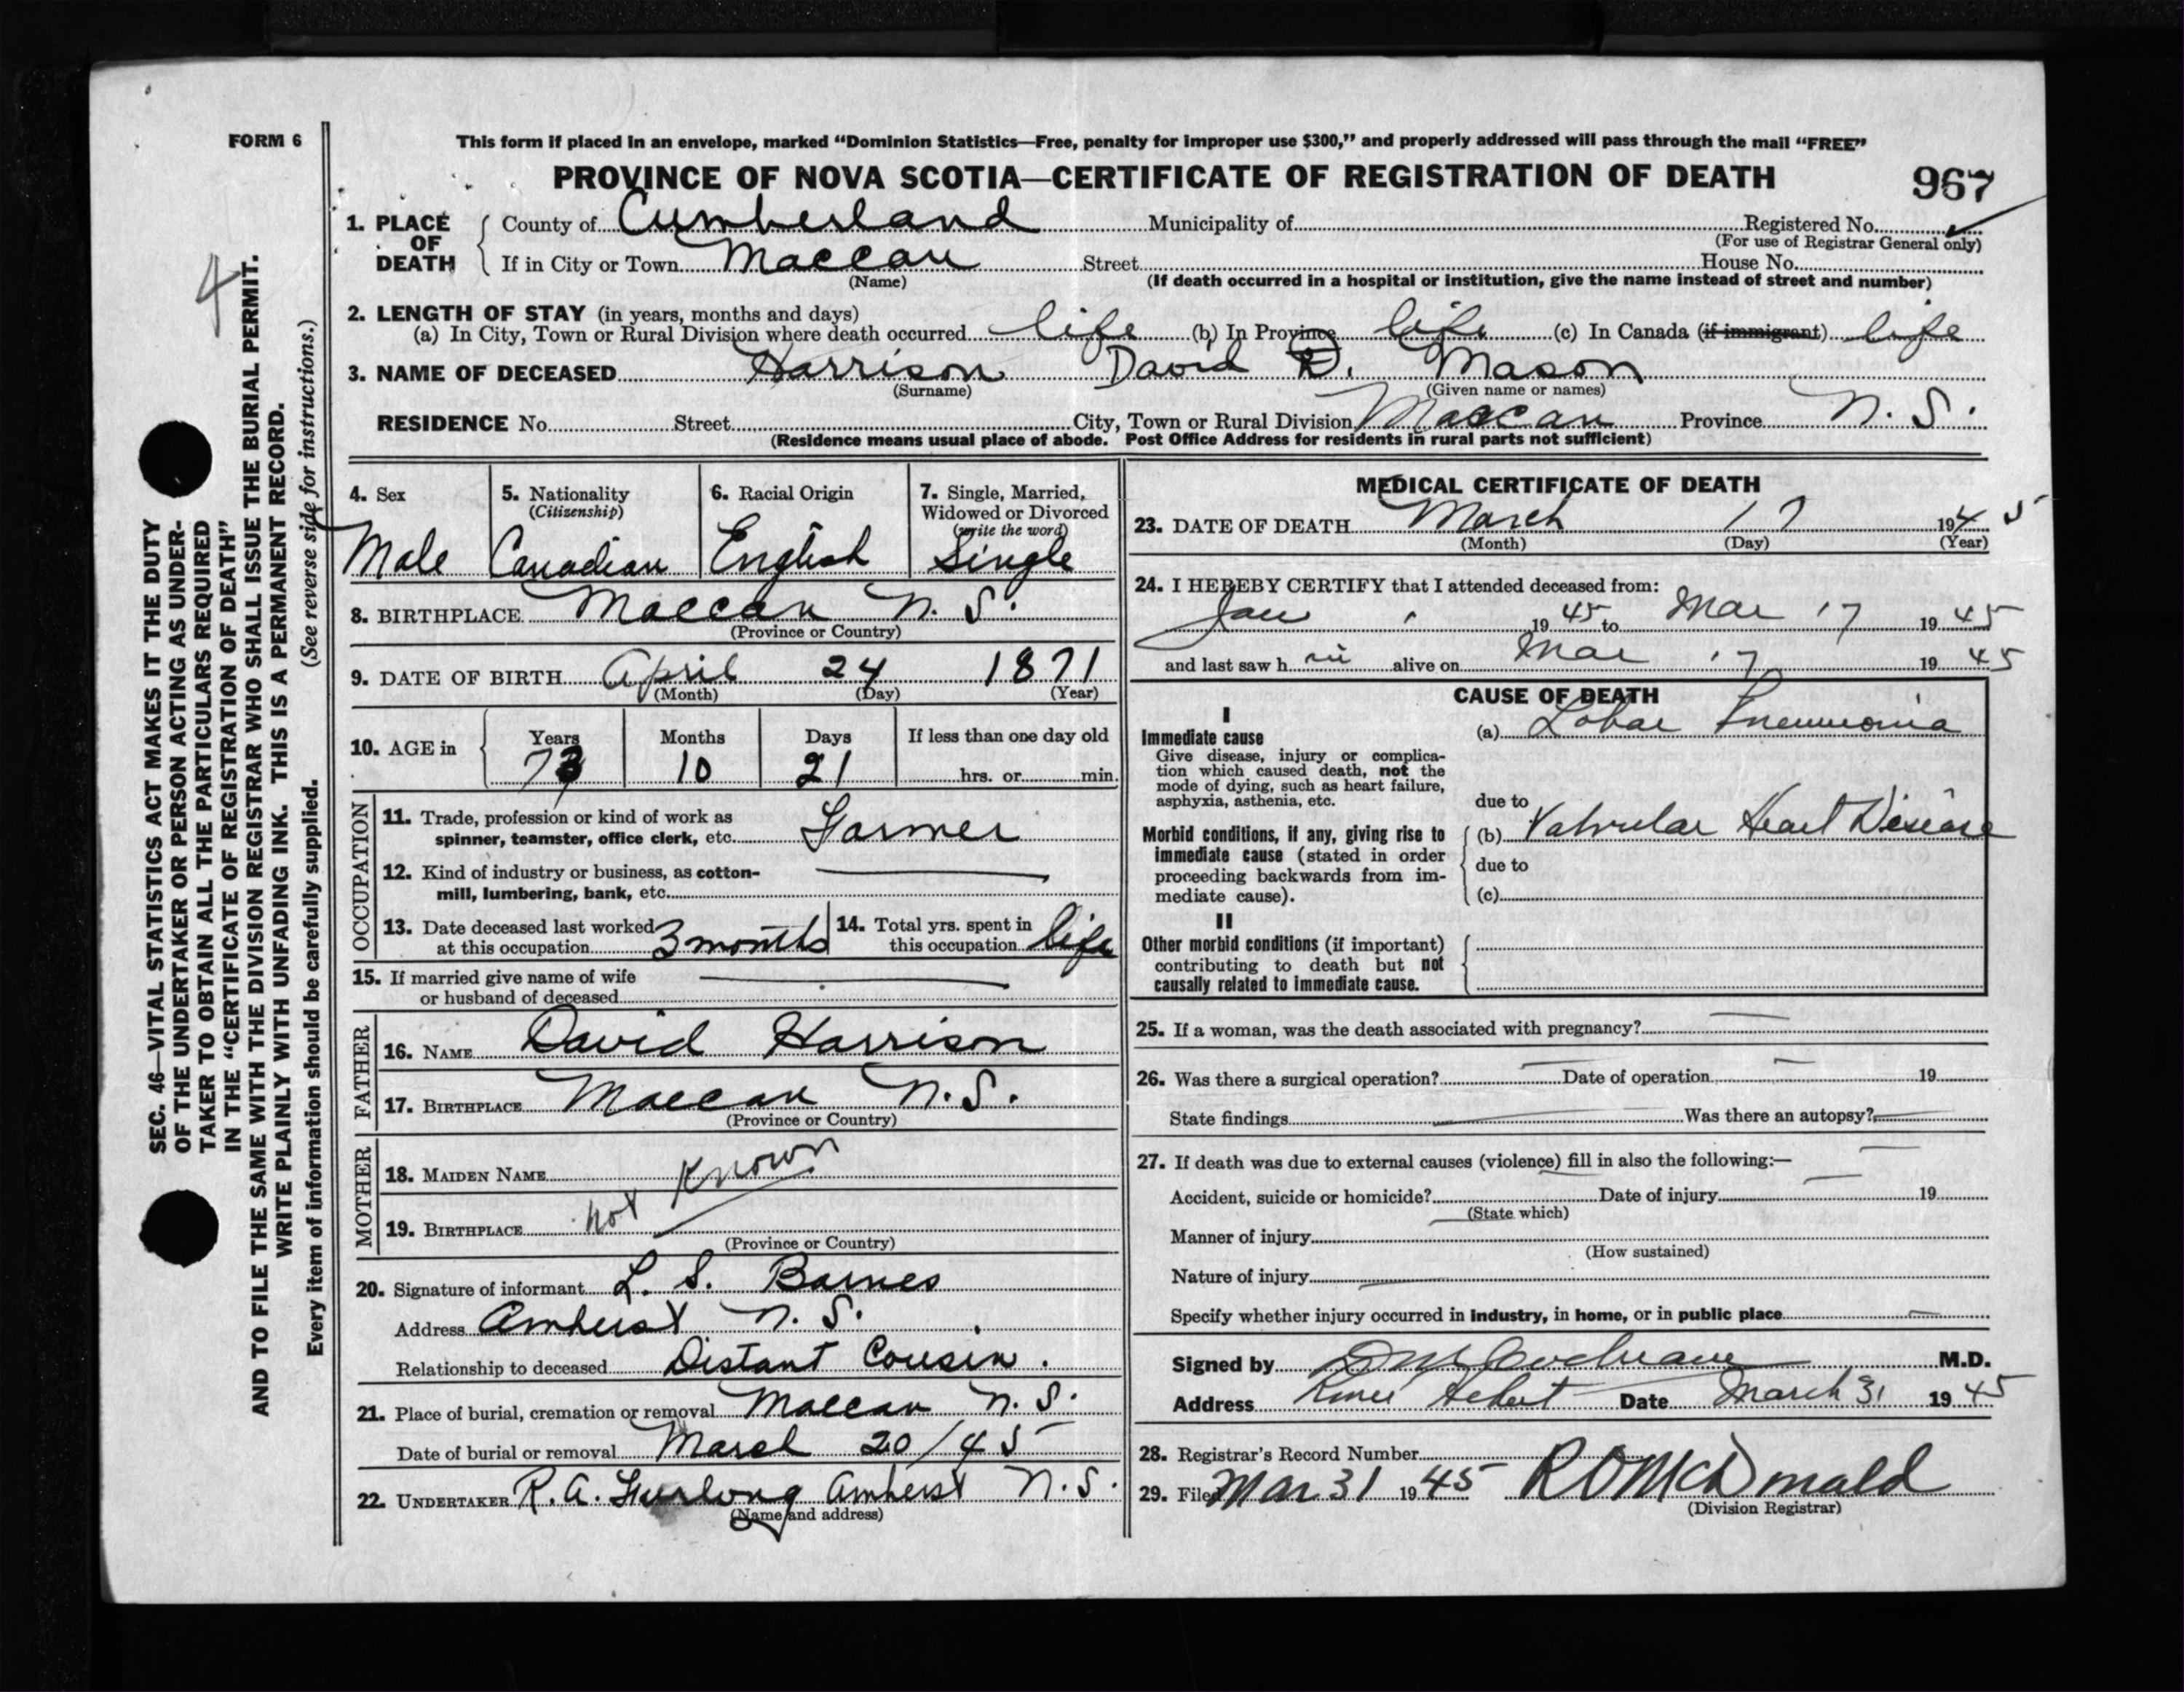 FORM 6
This form if placed in an envelope, marked “Dominion Statistics—Free, penalty for improper use $300,” and properly addressed will pass through the mail “FREE”
PROVINCE OF NOVA SCOTIA—CERTIFICATE OF REGISTRATION OF DEATH
967
1. PLACE OF DEATH
County of Cumberland Municipality of Registered No. ✓
(For use of Registrar General only)
If in City or Town Maccan Street House No.
(Name) (If death occurred in a hospital or institution, give the name instead of street and number)
2. LENGTH OF STAY (in years, months and days)
(a) In City, Town or Rural Division where death occurred life (b) In Province life (c) In Canada (if immigrant) life
3. NAME OF DECEASED Harrison David D. Mason
(Surname) (Given name or names)
RESIDENCE No. Street City, Town or Rural Division Maccan Province N. S.
(Residence means usual place of abode. Post Office Address for residents in rural parts not sufficient)
4. Sex
Male
5. Nationality
(Citizenship)
Canadian
6. Racial Origin
English
7. Single, Married,
Widowed or Divorced
(write the word)
Single
8. BIRTHPLACE Maccan N. S.
(Province or Country)
9. DATE OF BIRTH April 24 1871
(Month) (Day) (Year)
10. AGE in
Years Months Days If less than one day old
73 10 21 hrs. or min.
OCCUPATION
11. Trade, profession or kind of work as
spinner, teamster, office clerk, etc. Farmer
12. Kind of industry or business, as cotton-
mill, lumbering, bank, etc.
13. Date deceased last worked
at this occupation 3 months
14. Total yrs. spent in
this occupation life
15. If married give name of wife
or husband of deceased
FATHER
16. NAME David Harrison
17. BIRTHPLACE Maccan N. S.
(Province or Country)
MOTHER
18. MAIDEN NAME
19. BIRTHPLACE not Known
(Province or Country)
20. Signature of informant L. S. Barnes
Address Amherst N. S.
Relationship to deceased Distant Cousin.
21. Place of burial, cremation or removal Maccan N. S.
Date of burial or removal March 20/45
22. UNDERTAKER R. A. Furlong Amherst N. S.
(Name and address)
MEDICAL CERTIFICATE OF DEATH
23. DATE OF DEATH March 17 1945
(Month) (Day) (Year)
24. I HEREBY CERTIFY that I attended deceased from:
Jan 1945 to Mar 17 1945
and last saw h im alive on Mar 17 1945
CAUSE OF DEATH
I
Immediate cause
Give disease, injury or complica-
tion which caused death, not the
mode of dying, such as heart failure,
asphyxia, asthenia, etc.
(a) Lobar Pneumonia
due to
Morbid conditions, if any, giving rise to
immediate cause (stated in order
proceeding backwards from im-
mediate cause).
(b) Valvular Heart Disease
due to
(c)
II
Other morbid conditions (if important)
contributing to death but not
causally related to immediate cause.
25. If a woman, was the death associated with pregnancy?
26. Was there a surgical operation? Date of operation 19
State findings Was there an autopsy?
27. If death was due to external causes (violence) fill in also the following:—
Accident, suicide or homicide? Date of injury 19
(State which)
Manner of injury
(How sustained)
Nature of injury
Specify whether injury occurred in industry, in home, or in public place
Signed by Cochrane M.D.
Address River Hebert Date March 31 1945
28. Registrar's Record Number
29. Filed Mar 31 1945 R O McDonald
(Division Registrar)
4
SEC. 46—VITAL STATISTICS ACT MAKES IT THE DUTY
OF THE UNDERTAKER OR PERSON ACTING AS UNDER-
TAKER TO OBTAIN ALL THE PARTICULARS REQUIRED
IN THE “CERTIFICATE OF REGISTRATION OF DEATH”
AND TO FILE THE SAME WITH THE DIVISION REGISTRAR WHO SHALL ISSUE THE BURIAL PERMIT.
WRITE PLAINLY WITH UNFADING INK. THIS IS A PERMANENT RECORD.
Every item of information should be carefully supplied. (See reverse side for instructions.)